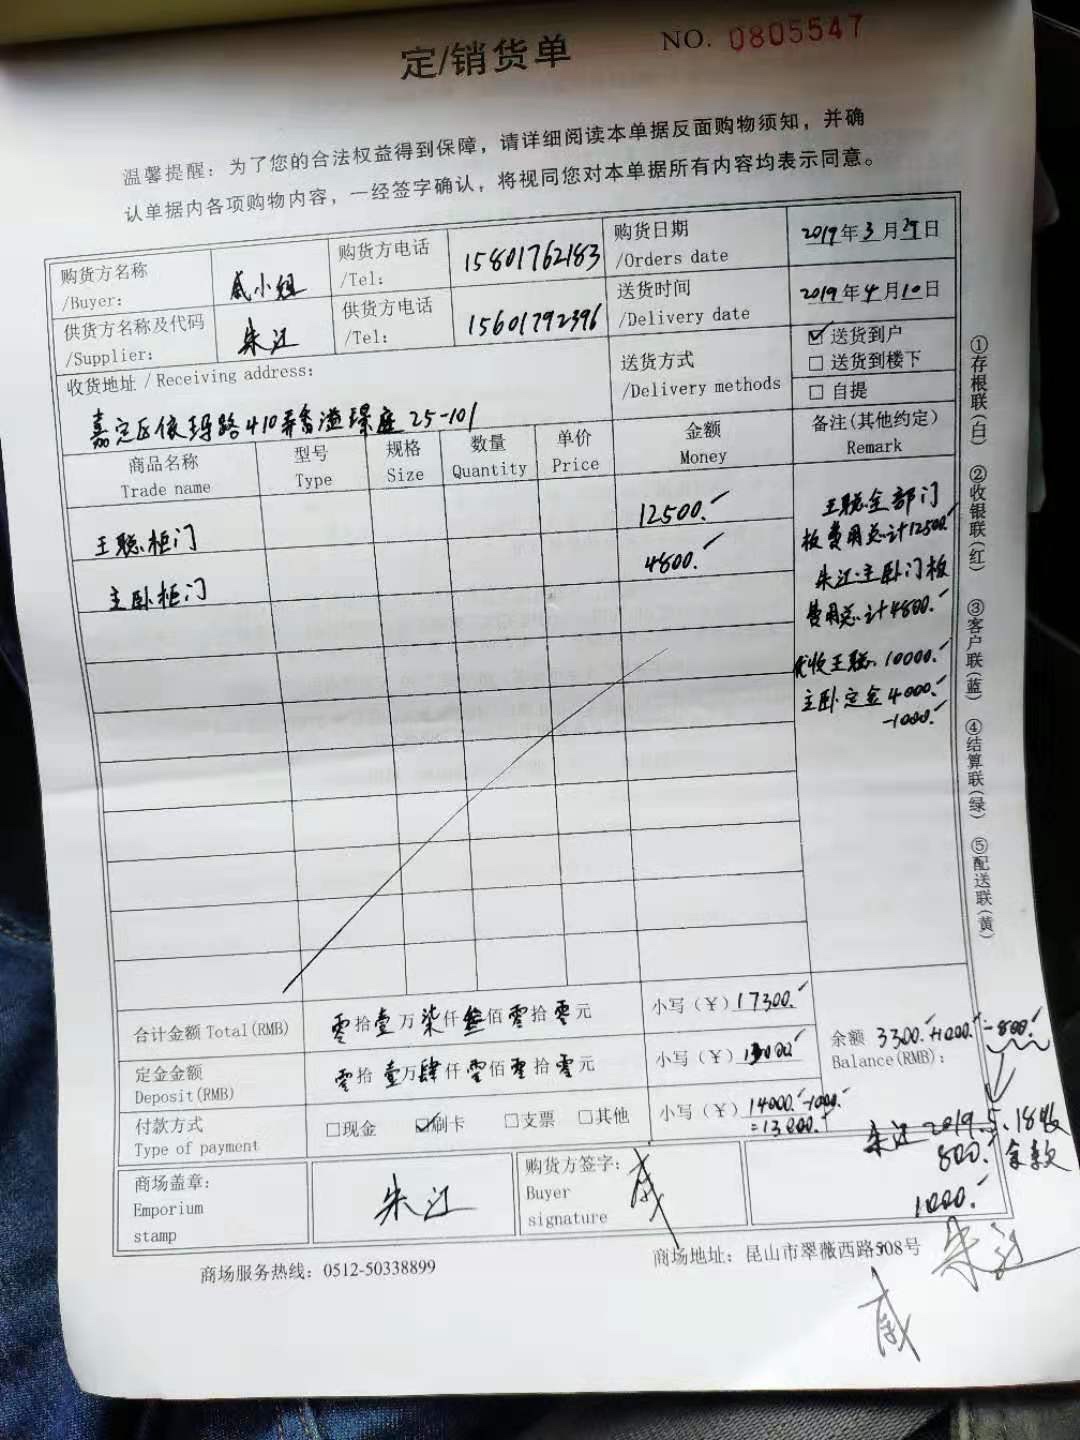 定/销货单
NO. 0805547
温馨提醒：为了您的合法权益得到保障，请详细阅读本单据反面购物须知，并确
认单据内各项购物内容，一经签字确认，将视同您对本单据所有内容均表示同意。
购货方名称 /Buyer: 戚小姐
购货方电话 /Tel: 15801762183
购货日期 /Orders date 2019年3月29日
供货方名称及代码 /Supplier: 朱江
供货方电话 /Tel: 15601792396
送货时间 /Delivery date 2019年4月10日
收货地址 / Receiving address:
嘉定区依玛路410弄香溢璟庭25-101
送货方式 /Delivery methods
☑送货到户
□送货到楼下
□自提
商品名称 Trade name
型号 Type
规格 Size
数量 Quantity
单价 Price
金额 Money
备注(其他约定) Remark
王聪柜门 12500.-
主卧柜门 4800.-
王聪全部门
板费用总计12500.-
朱江·主卧门板
费用总计4800.-
王聪 10000.-
主卧定金4000.-
-1000.-
合计金额 Total(RMB) 零拾壹万柒仟叁佰零拾零元
小写（¥）17300.-
定金金额 Deposit(RMB) 零拾壹万肆仟零佰零拾零元
小写（¥）
余额 Balance(RMB): 3300.-+1000.-=800.-
付款方式 Type of payment □现金 ☑刷卡 □支票 □其他
小写（¥）14000.-1000.-
=13000.-
朱江 2019.5.18收
800.- 余款
1000.-
商场盖章: Emporium stamp 朱江
购货方签字: Buyer signature 戚
朱江
戚
商场服务热线：0512-50338899
商场地址：昆山市翠薇西路508号
①存根联(白) ②收银联(红) ③客户联(蓝) ④结算联(绿) ⑤配送联(黄)